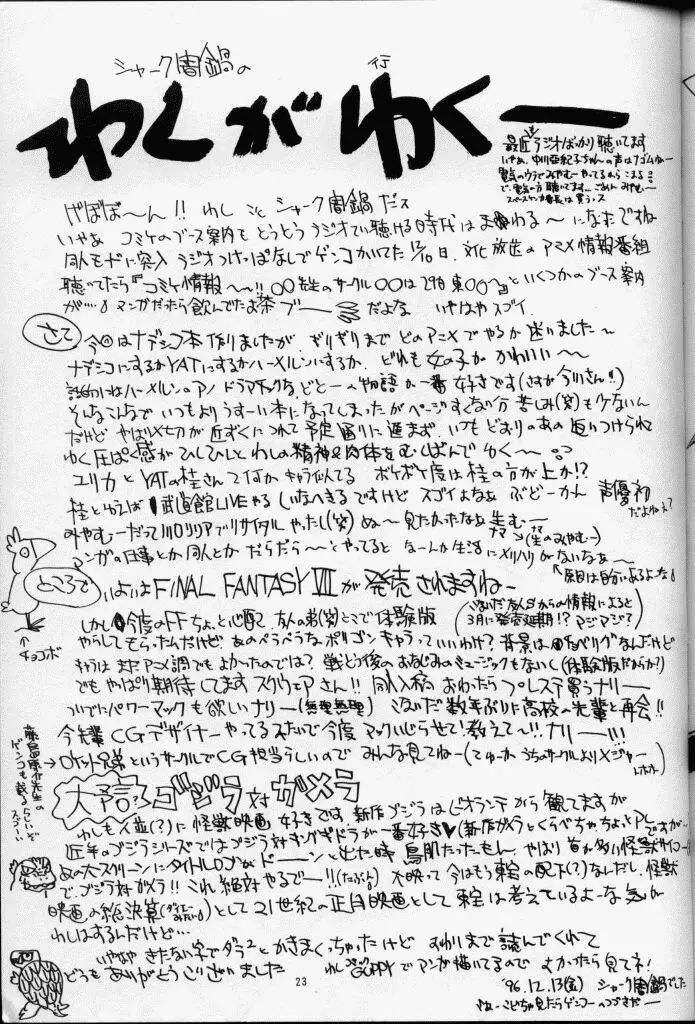 シャーク闇鍋の
行
わしがゆくー
最近ラジオばっかり聴いてます
いやぁ、中川亜紀子ちゃんの声は
電気のウラでみやむーやってるからこまる
で、電気の方聴いてます…ごめんみやむー
は買うっス
げぼぼ〜ん!! わしことシャーク闇鍋だス
いやぁ コミケのブース案内もとうとうラジオでい聴ける時代はまわる〜になたですね
同人モードに突入 ラジオつけっぱなしでゲンコかいてた12/10日、文化放送のアニメ情報番組
聴いてたら『コミケ情報〜!! 〇〇先生のサークル〇〇は29日東〇〇〜』といくつかのブース案内
が…。マンガだったら飲んでたお茶ブー だよな いやはやスゴイ
さて
今回はナデシコ本作りましたが、ギリギリまでどのアニメでやるか迷いました〜
ナデシコにするかYATにするかハーメルンにするか、どれも女の子がかわいい〜
話的にはハーメルンのアノ ドラマチックな どとーの物語が一番好きです(さすが今川さん!!)
そんなこんなでいつもよりうすーい本になってしまったがページすくない分苦しみ(笑)も少ないん
だけど やはり〆切が近ずくにつれて予定通りに進まず、いつもどおりのあの追いつけられて
ゆく圧ぱく感がひしひしとわしの精神&肉体をむしばんでゆく〜
ユリカとYATの桂さんって何かキャラ似てる ボケボケ度は桂の方が上か!?
桂といえば武道館LIVEやるしいなへきるですけど スゴイよなぁぶどーかん 声優初
だよねぇ?
みやむーだって川口リリアでリサイタルやったし(笑) ぬ〜見たかったなぁ生むー
ナマ→(生のみやむー)
マンガの仕事とか同人とか だらだら〜とやってると なーんか生活にメリハリがないなぁ〜
↑原因は自分にあるよーな
ところで
いよいよFINAL FANTASY VIIが発売されますねー
しかし今度のFFちょっと心配 友人の弟(笑)とこで体験版
(ついさい友人Sからの情報によると
3月に発売延期!? マジ マジ?)
やらしてもらったんだけど、あのペラペラなポリゴンキャラっていいわけ? 背景はなんだけど
キャラはまだアニメ調でもよかったのでは? 戦とう後のおなじみのミュージックもないし(体験版だからか?)
でもやっぱり期待してますスクウェアさん!! 同人入稿おわったらプレステ買うナリー
ついでにパワーマックも欲しいナリー(無理無理) 数年ぶりに高校の先輩と再会!!
今先輩CGデザイナーやってるみたいで今度マックいじらせて! 教えて〜!! ナリー!!!
ロケット兄弟というサークルでCG担当らしいのでみんな見てねー(てゆーか うちのサークルよりメジャー
↑
チョコボ
藤島康介先生の
ゲンコも載るらしいぞ
スゴーい
大予言? ゴジラ対ガメラ
わしも人並(?)に怪獣映画好きです 新作ゴジラはビオランテから観てますが
近年のゴジラシリーズではゴジラ対キングギドラが一番好き♥(新作ガメラとくらべちゃちょっとアレですが…)
あの大スクリーンにタイトルロゴがドーーンと出た時鳥肌たったもん、やはり首が多い怪獣サイコー!!
で、ゴジラ対ガメラ!! これ絶対やるでー!!(たぶん) 大映って今はもう東宝の配下(?)なんだし、怪獣
映画の総決算として21世紀の正月映画として東宝は考えているよーな気が
わしはするんだけど…
いやはや きたない字でダラダラとかきまくっちゃったけど おわりまで読んでくれて
どうもありがとうございました
わしGUPPYでマンガ描いてるので よかったら見てネ!
'96.12.13(金) シャーク闇鍋でした
23